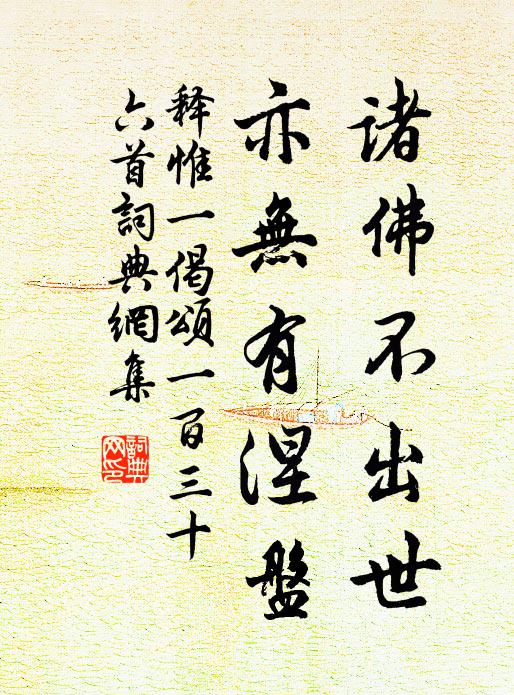 諸佛不出世
亦無有涅盤
释惟一偈頌一百三十
六首詞典網集
詞典网印